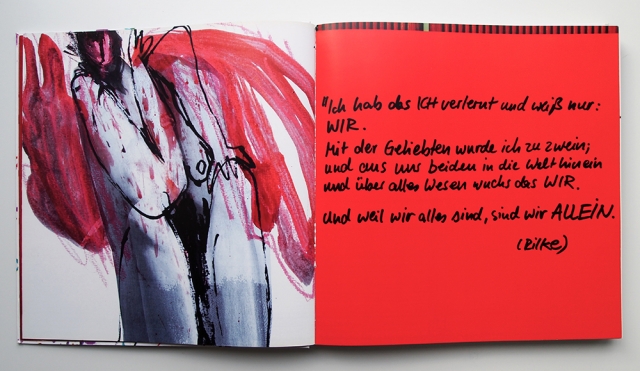 "Ich hab das ICH verlernt und weiß nur:
WIR.
Mit der Geliebten wurde ich zu zwein;
und aus uns beiden in die Welt hinein
und über alles Wesen wuchs das WIR.
Und weil wir alles sind, sind wir ALLEIN.
(Rilke)